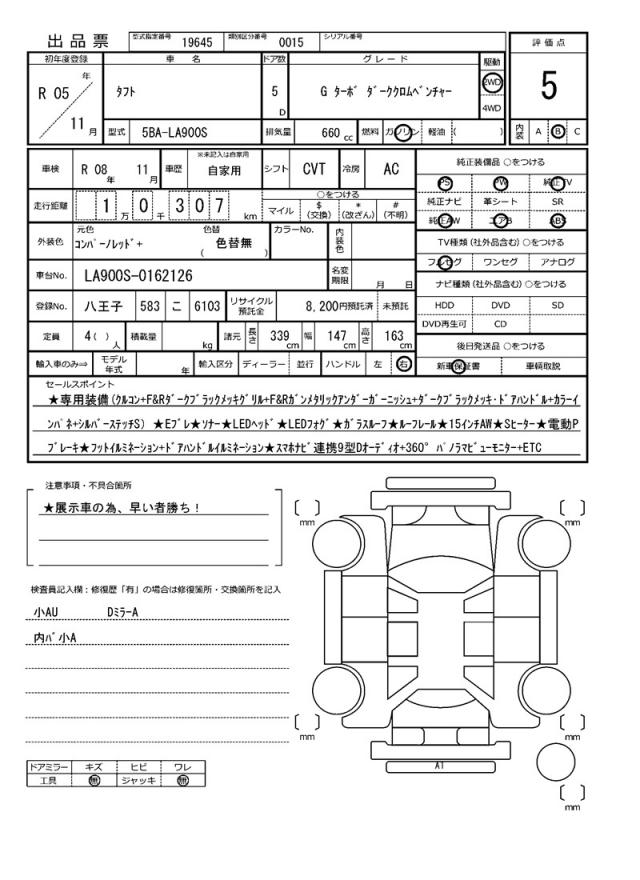 出品票 型式指定番号 19645 類別区分番号 0015 シリアル番号
評価点
5
内装 A B C
初年度登録 車名 ドア数 グレード 駆動
R 05 年 11 月 タフト 5 D G ターボ ダーククロムベンチャー 2WD 4WD
型式 5BA-LA900S 排気量 660 cc 燃料 ガソリン 軽油 ( )
車検 R 08 年 11 月 車歴 ※未記入は自家用 自家用 シフト CVT 冷房 AC
走行距離 1 万 0 千 3 0 7 km ○をつける マイル $ (交換) * (改ざん) # (不明)
外装色 元色 コンパーノレッド+ 色替 ( 色替無 ) カラーNo. 内装色
車台No. LA900S-0162126 名変期限 月 日
登録No. 八王子 583 こ 6103 リサイクル預託金 8,200円預託済 未預託
定員 4( ) 人 積載量 kg 諸元 長さ 339 cm 幅 147 cm 高さ 163 cm
輸入車のみ⇒ モデル年式 年 輸入区分 ディーラー 並行 ハンドル 左 右
純正装備品 ○をつける
PS PW 純正TV
純正ナビ 革シート SR
純正AW エアB ABS
TV種類(社外品含む)○をつける
フルセグ ワンセグ アナログ
ナビ種類(社外品含む)○をつける
HDD DVD SD
DVD再生可 CD
後日発送品 ○をつける
新車保証書 車輌取説
セールスポイント
★専用装備(クルコン+F&Rダークブラックメッキグリル+F&Rガンメタリックアンダーガーニッシュ+ダークブラックメッキ・ドアハンドル+カラーイ
ンパネ+シルバーステッチS) ★Eブレ★ソナー★LEDヘッド★LEDフォグ★ガラスルーフ★ルーフレール★15インチAW★Sヒーター★電動P
ブレーキ★フットイルミネーション+ドアハンドルイルミネーション★スマホナビ連携9型Dオーディオ+360° パノラマビューモニター+ETC
注意事項・不具合箇所
★展示車の為、早い者勝ち!
検査員記入欄:修復歴「有」の場合は修復箇所・交換箇所を記入
小AU DミラーA
内バ小A
ドアミラー キズ ヒビ ワレ
工具 無 ジャッキ 無
mm
mm
mm
mm
A1
mm